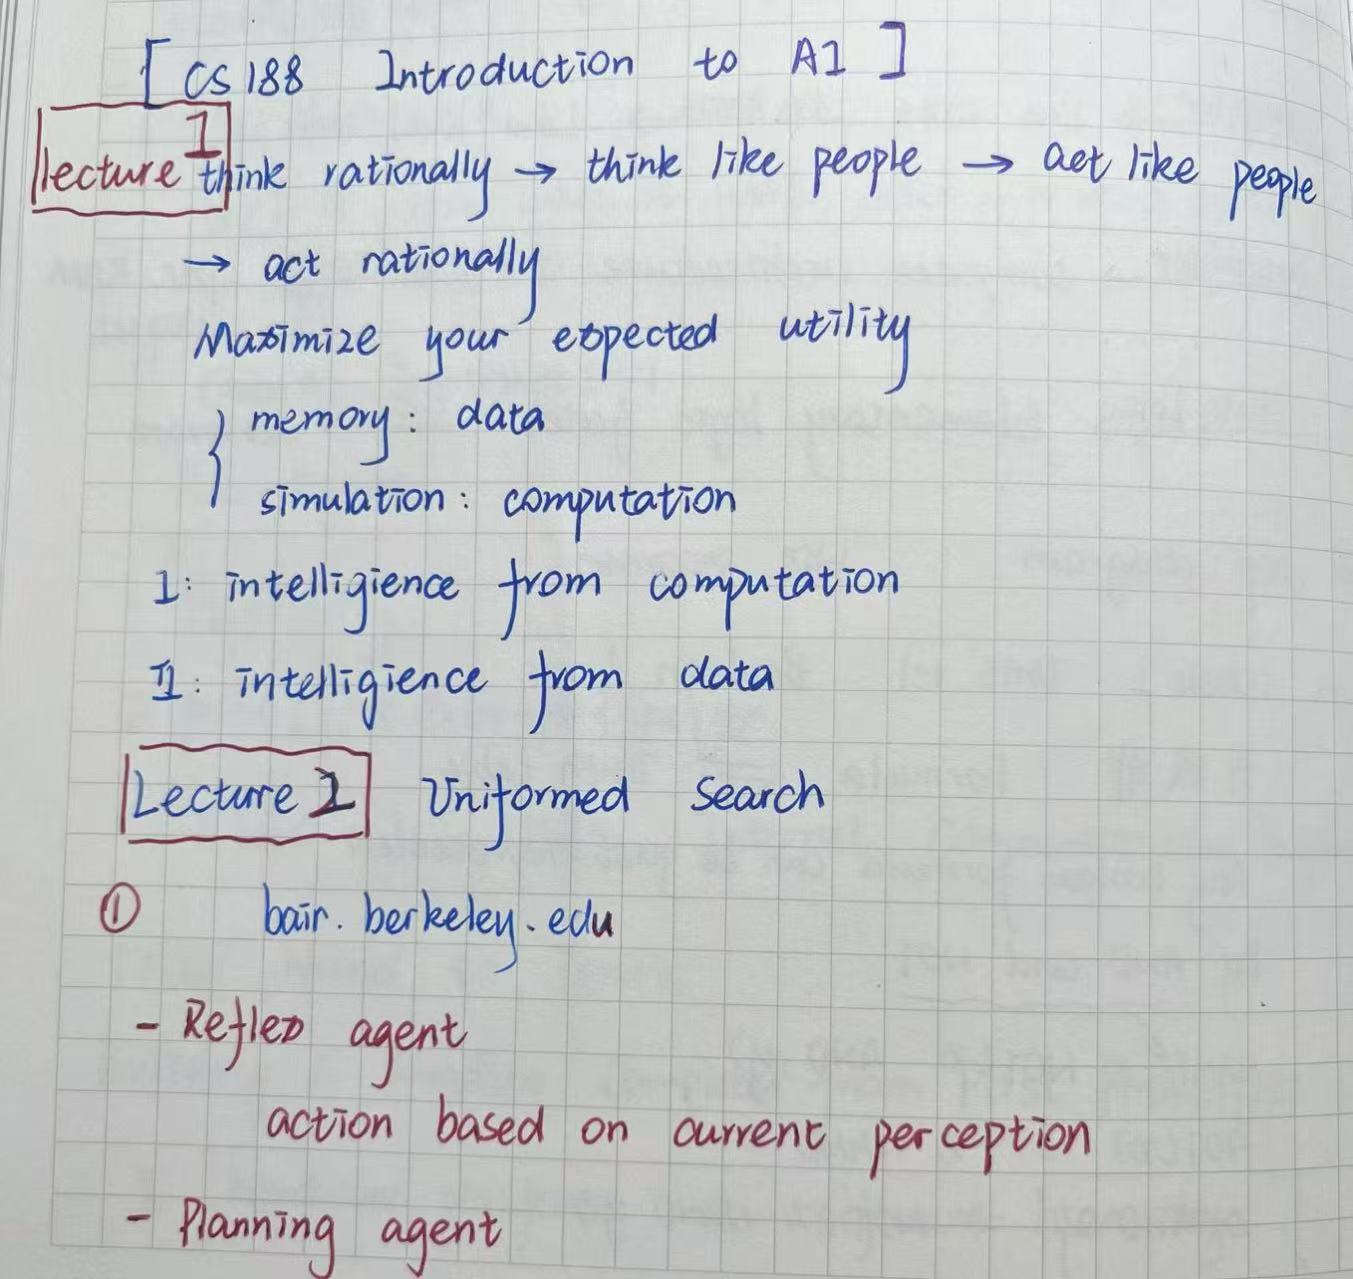 [ CS188 Introduction to AI ]
lecture 1 think rationally → think like people → act like people
→ act rationally
Maximize your expected utility
{ memory: data
simulation: computation
I: intelligience from computation
II: intelligience from data
Lecture 2 Uniformed Search
① bair.berkeley.edu
- Reflex agent
action based on current perception
- Planning agent